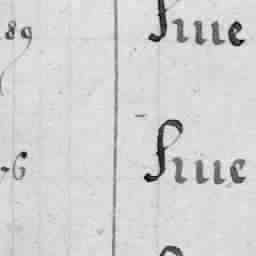 89 Sine
-6 Sine